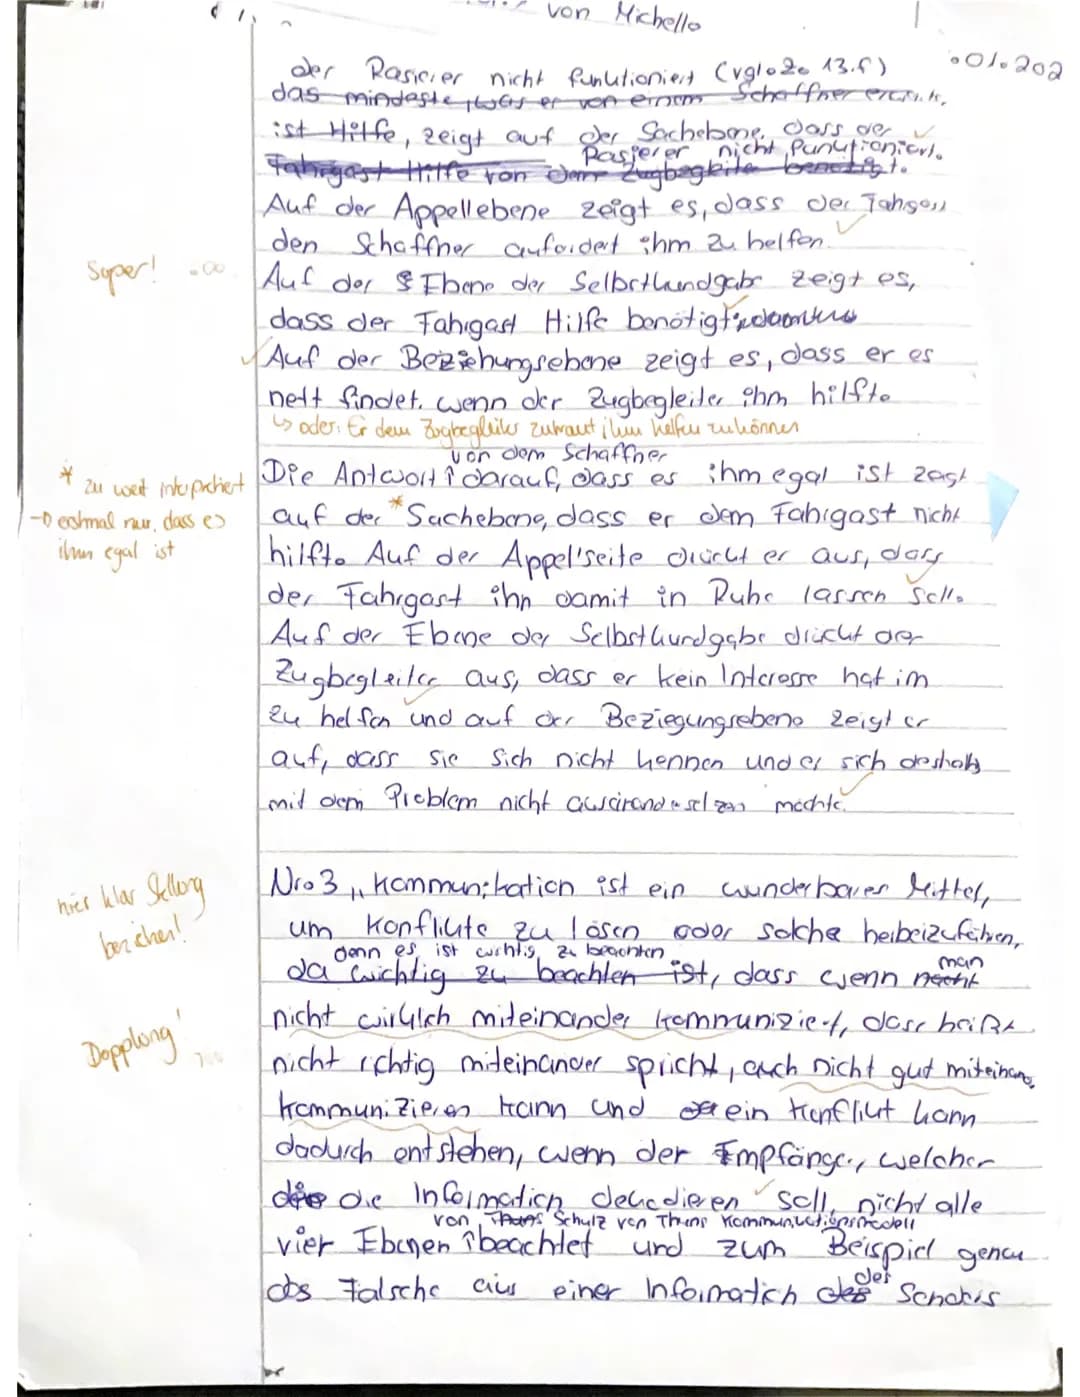 von Michello
.01.202
der Rasierer nicht funktioniert (vgl. Z. 13.f)
das mindeste, was er von einem Schaffner
ist Hilfe, zeigt auf der Sachebene, dass der
Rasierer nicht funktioniert.
Fahrgast Hilfe von dem Zugbegleiter benötigt.
Auf der Appellebene zeigt es, dass der Fahrgast
den Schaffner aufordert ihm zu helfen.
Super!
Auf der Ebene der Selbstkundgabe zeigt es,
dass der Fahrgast Hilfe benötigt
Auf der Beziehungsebene zeigt es, dass er es
nett findet, wenn der Zugbegleiter ihm hilft.
↳ oder: Er dem Zugbegleiter zutraut ihm helfen zu können
von dem Schaffner
Die Antwort darauf, dass es ihm egal ist zeigt
* zu weit interpretiert
auf der *Sachebene, dass er dem Fahrgast nicht
→ erstmal nur, dass es
ihm egal ist
hilft. Auf der Appellseite drückt er aus, dass
der Fahrgast ihn damit in Ruhe lassen soll.
Auf der Ebene der Selbstkundgabe drückt der
Zugbegleiter aus, dass er kein Interesse hat im
zu helfen und auf der Beziegungsebene zeigt er
auf, dass sie sich nicht kennen und er sich deshalb
mit dem Problem nicht auseinandersetzen möchte.
Nr.3 „Kommunikation ist ein wunderbares Mittel,
hier klar Stellung
beziehen!
um Konflikte zu lösen oder solche herbeizuführen,
denn es ist wichtig zu beachten
da wichtig zu beachten ist, dass wenn man
nicht wirklich miteinander kommuniziert, dass heißt
Dopplung!
nicht richtig miteinander spricht, auch nicht gut miteinander
kommunizieren kann und ein Konflikt kann
dadurch entstehen, wenn der Empfänger, welcher
die Information decodieren soll, nicht alle
von Schulz von Thuns Kommunikationsmodell
vier Ebenen beachtet und zum Beispiel genau
das Falsche aus einer Information des